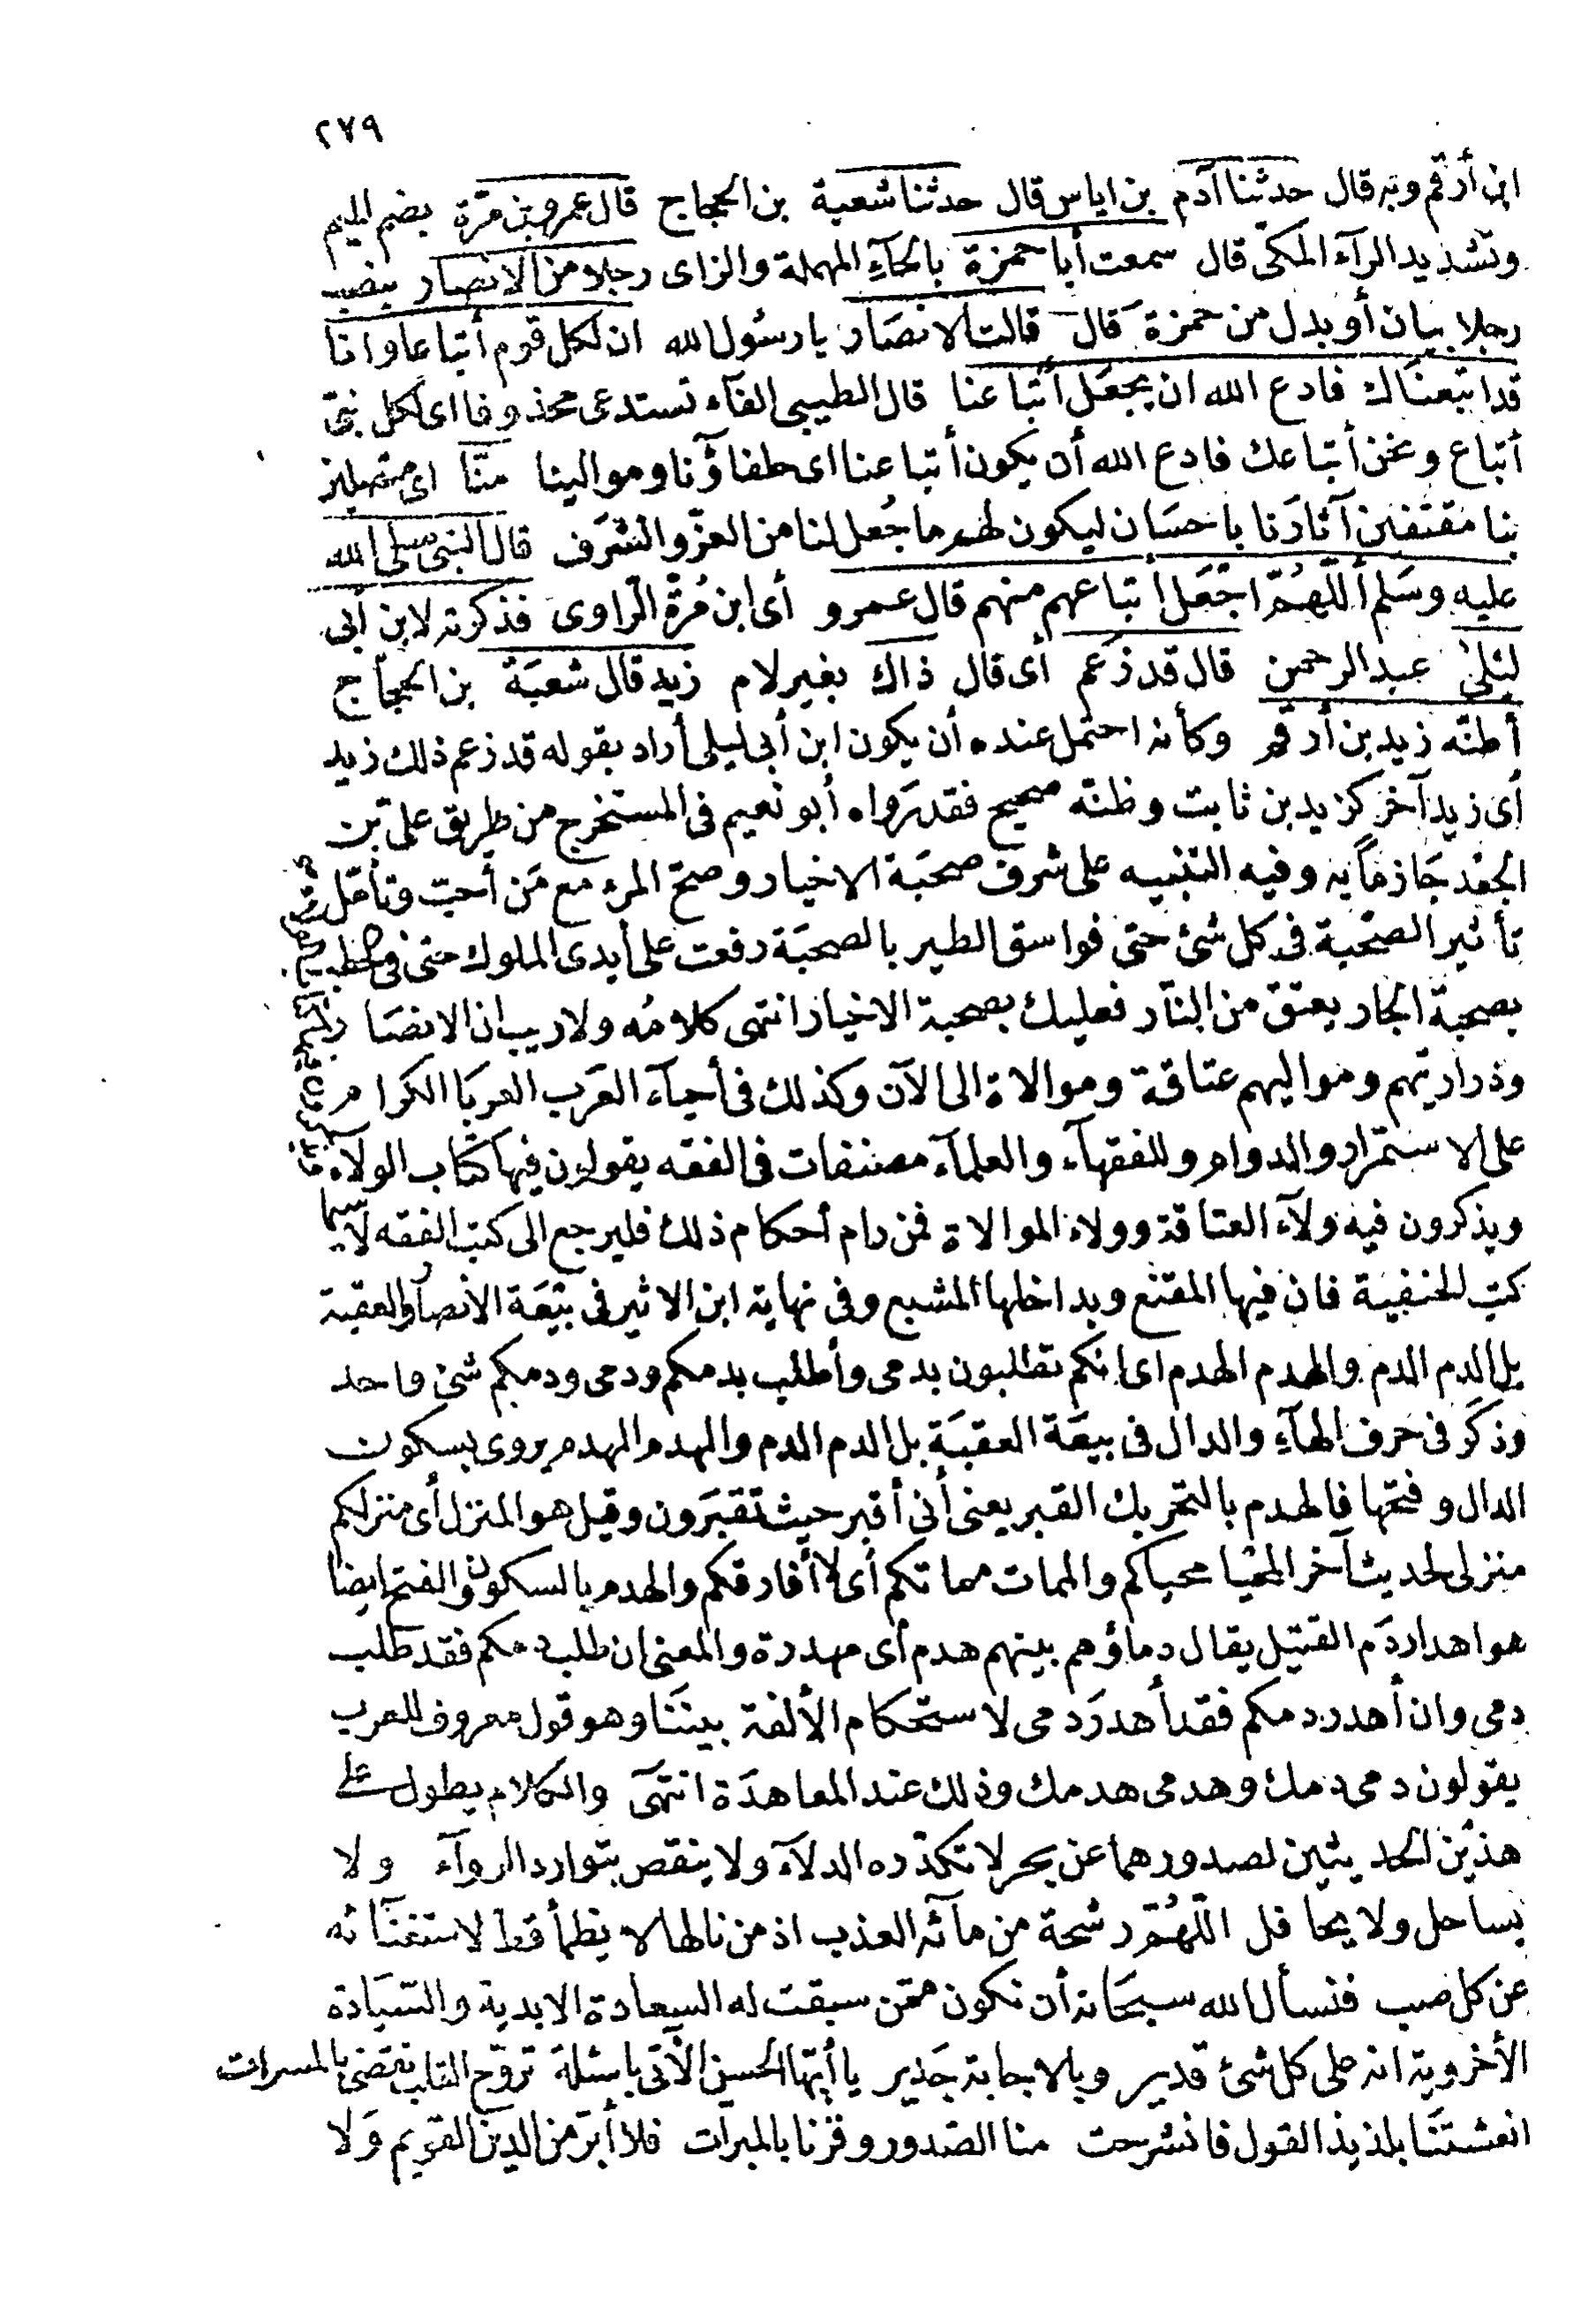 ٢٧٩
ابن أرقم وبه قال حدثنا آدم بن اياس قال حدثنا شعبة بن الحجاج قال عمرو بن مرّة بضم الميم
وتشديد الرآء المكى قال سمعت أبا حمزة بالحآءِ المهملة والزاى رجلا من الانصار بنصب
رجلا بيان أو بدل من حمزة قال قالت الانصَار يا رسُول الله ان لكل قوم أتباعا وانا
قد اتبعنَاك فادع الله ان يجعَل أتباعنا قال الطيبى الفآء تستدعى محذوفا اى لكل نبىّ
أتباع ونحن أتباعك فادع الله أن يكون أتباعنا اى حلفاؤنا وموالينا منّا اى متصلين
بنا مقتفين آثارَنا باحسَان ليكون لهم ما جُعل لنا من العزّ والشرَف قال النبى صلى الله
عليه وسَلم أللّهُمّ اجْعَل أتباعهم منهم قال عمرو أى ابن مُرّة الراوى فذكرته لابن أبى
ليْلى عبد الرحمن قال قد زعم أى قال ذاك بغير لام زيد قال شعبَة بن الحجاج
أظنّه زيد بن أرقم وكأنه احتمل عنده أن يكون ابن أبى ليلى أراد بقوله قد زعم ذلك زيد
أى زيد آخر كزيد بن ثابت وظنّه صحيح فقد رَواه أبو نعيم فى المستخرج من طريق على بن
الجعْد جَازمًا به وفيه التنبيه على شرف صحبَة الاخيار وصحّ المرء مع مَن أحبّ وتأمّل
تأثير الصّحبة فى كل شئ حتى فواسق الطير بالصحبَة رفعت على أيدى الملوك حتى فى الحطب
بصحبة النجار يعتق من النّار فعليك بصحبة الاخيار انتهى كلامُه ولا ريب ان الانصَا
وذراريهم ومواليهم عتاقة وموالاة الى الآن وكذلك فى أحيآء العَرب العربا الكرام
على الاستمرار والدوام وللفقهآء والعلمآء مصنفات فى الفقه يقولون فيها كتاب الولآء
ويذكرون فيه ولآء العتاقة وولاء الموالاة فمن رام أحكام ذلك فليرجع الى كتب الفقه لاسيما
كتب الحنفية فان فيها المقنع وبداخلها المشبع وفى نهاية ابن الاثير فى بيْعَة الأنصار والعقبة
بل الدم الدم والهدم الهدم اى انكم تطلبون بدمى وأطلب بدمكم ودمى ودمكم شئ واحد
وذكر فى حرف الهآءِ والدال فى بيعَة العقبَة بل الدم الدم والهدم الهدم يروى بسكون
الدال وفتحها فالهدم بالتحريك القبر يعنى أنى أقبر حيث تقبَرون وقيل هو المنزل أى منزلكم
منزلى لحديث آخر المحْيا محياكم والممات مماتكم أى لا أفارقكم والهدم بالسكون والفتح ايضا
هو اهدار دَم القتيل يقال دماؤهم بينهم هدم أى مهدرة والمعنى ان طلب دمكم فقد طلب
دمى وان أهدر دمكم فقد أهدرَ دمى لاستحكام الألفة بينَنا وهو قول معروف للعرب
يقولون دمى دمك وهدمى هدمك وذلك عند المعاهدَة انتهى والكلام يطول على
هذَين الحديثين لصدورهما عن بحر لا تكدّره الدلآء ولا ينقص بتوارد الروآء ولا
يساحل ولا يحافل اللّهُمّ رشحة من مآئه العذب اذ من نالها لا يظمأ قط لاستغنآئه
عن كل صب فنسأل الله سبحَانه أن نكون ممّن سبقت له السعادة الابدية والسّيَادة
الأخروية انه على كل شئ قدير وبالاجابة جَدير يا أيها الحسن الآتى باسئلة تروّح القلب تقتضى بالمسرات
انعشتنَا بلذيذ القول فانشرحت منا الصّدور وفزنا بالمبرات فلا أبرّ من الدين القويم وَلا